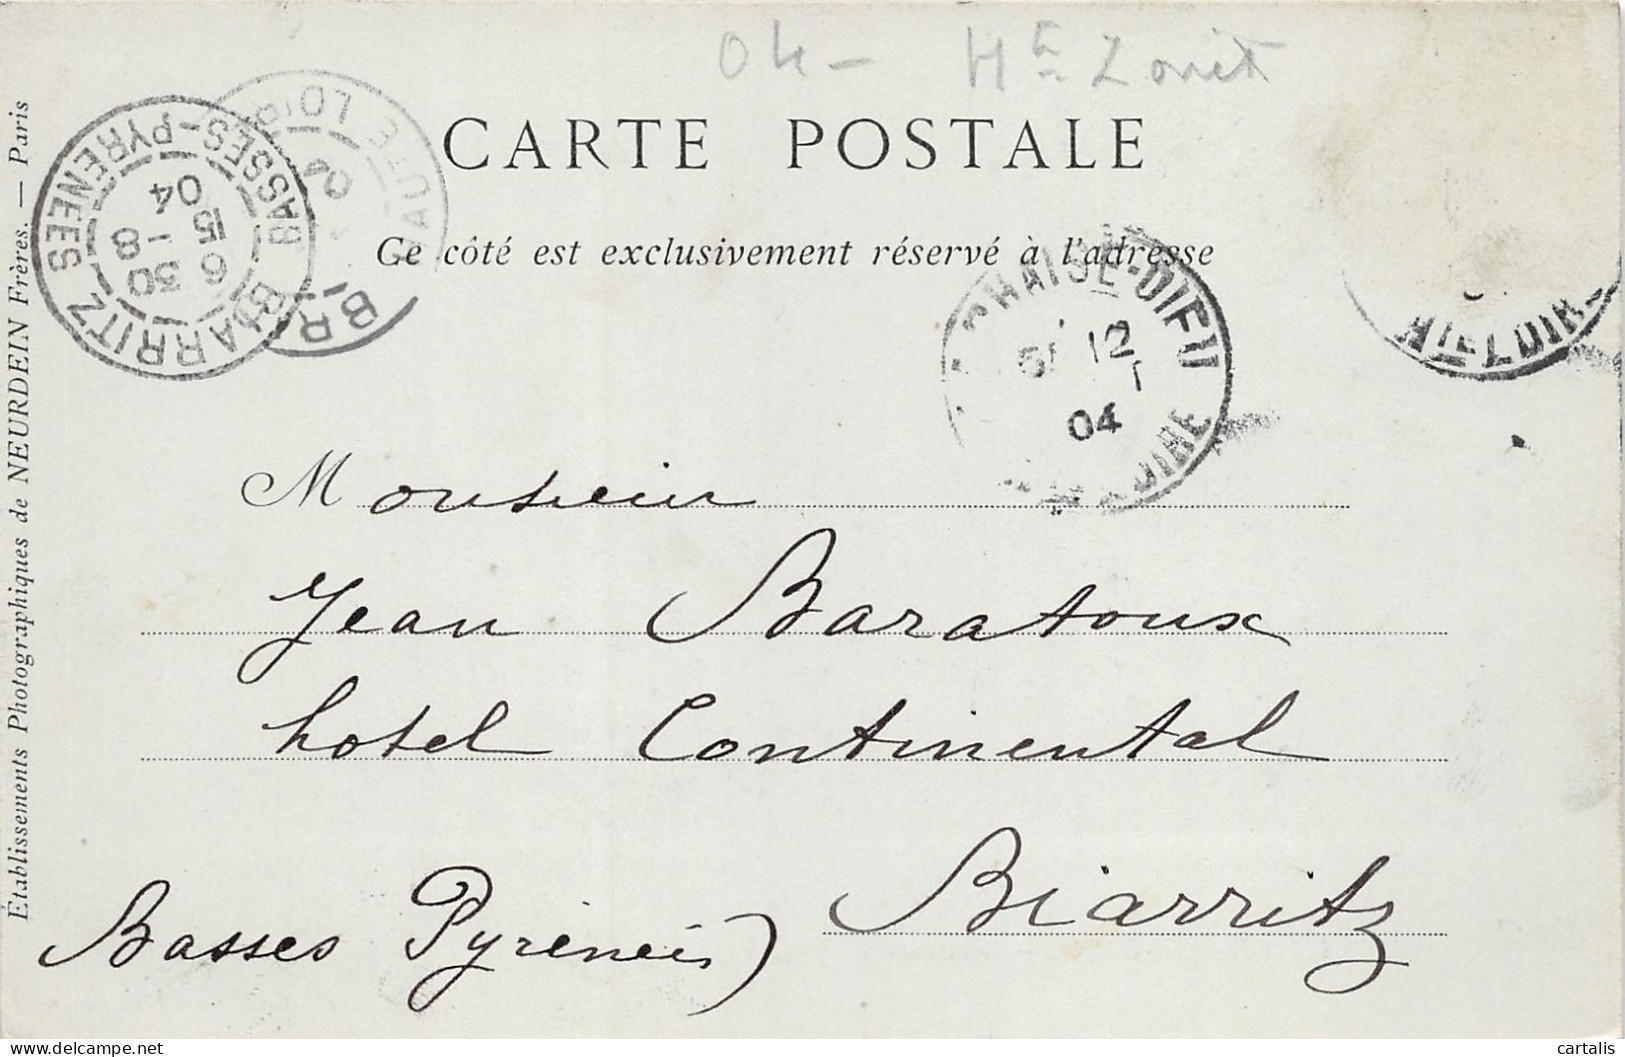 04 - Hte
CARTE POSTALE
Ce côté est exclusivement réservé à l'adresse
BIARRITZ BASSES-PYRÉNÉES
6 30
15 - 8
04
HAUTE LOIRE
BR
CHAISE-DIEU
12
04
LOIRE
HTE-LOIRE
Monsieur
Jean Baratoux
hotel Continental
Biarritz
Basses Pyrénées)
Établissements Photographiques de NEURDEIN Frères. — Paris
cartalis